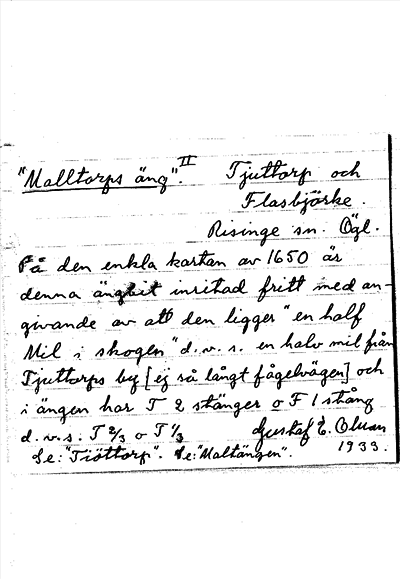 "Malltorps äng". II Tjuttorp och
Flasbjörke.
Risinge sn. Ögl.
På den enkla kartan av 1650 är
denna ängbit inritad fritt med an-
givande av att den ligger "en half
Mil i skogen" d.v.s. en halv mil från
Tjuttorps by [ej så långt fågelvägen] och
i ängen har T 2 stänger o F 1 stång
d.v.s. T 2/3 o F 1/3 Gustaf E.
Se: "Tiöttorp". Se: "Maltängen". 1933.